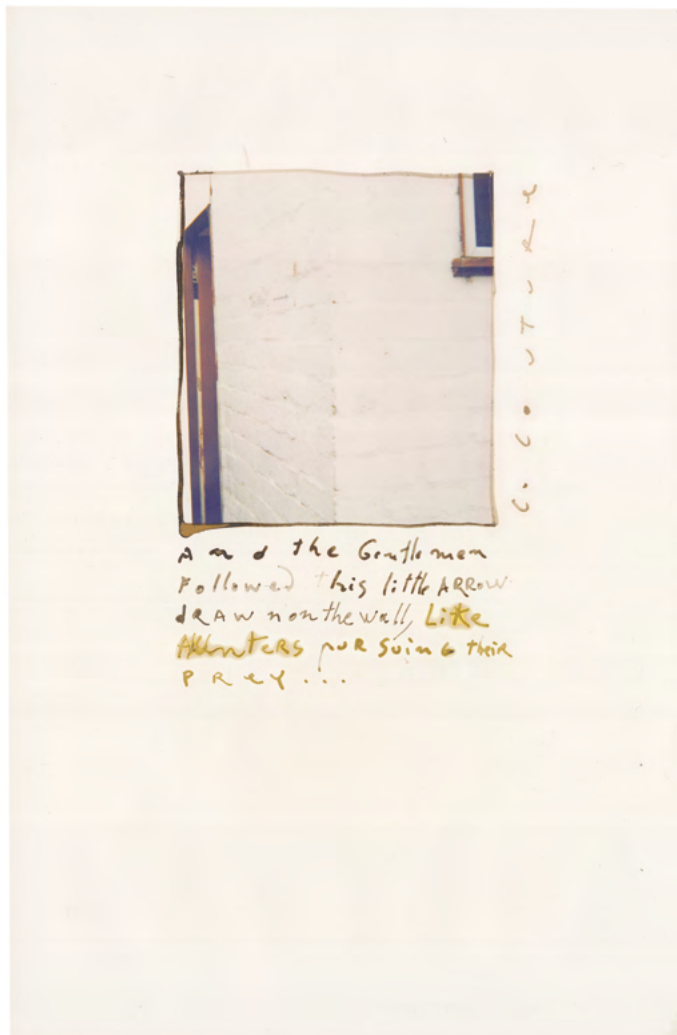 C. COUTURE
And the Gentlemen
Followed this little ARROW
dRAWn on the wall, Like
HunteRS puRSuinG theiR
PRey...